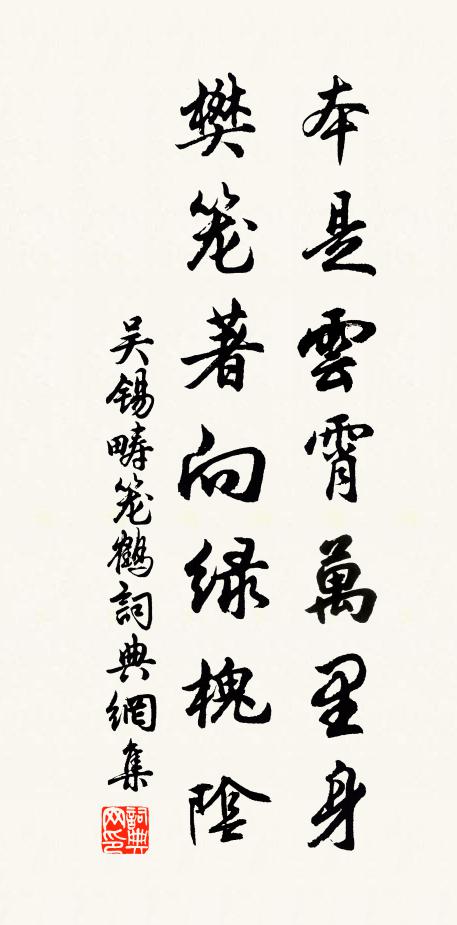 本是雲霄萬里身
樊笼著向緑槐陰
吴锡畴笼鶴詞典網集
詞典网印